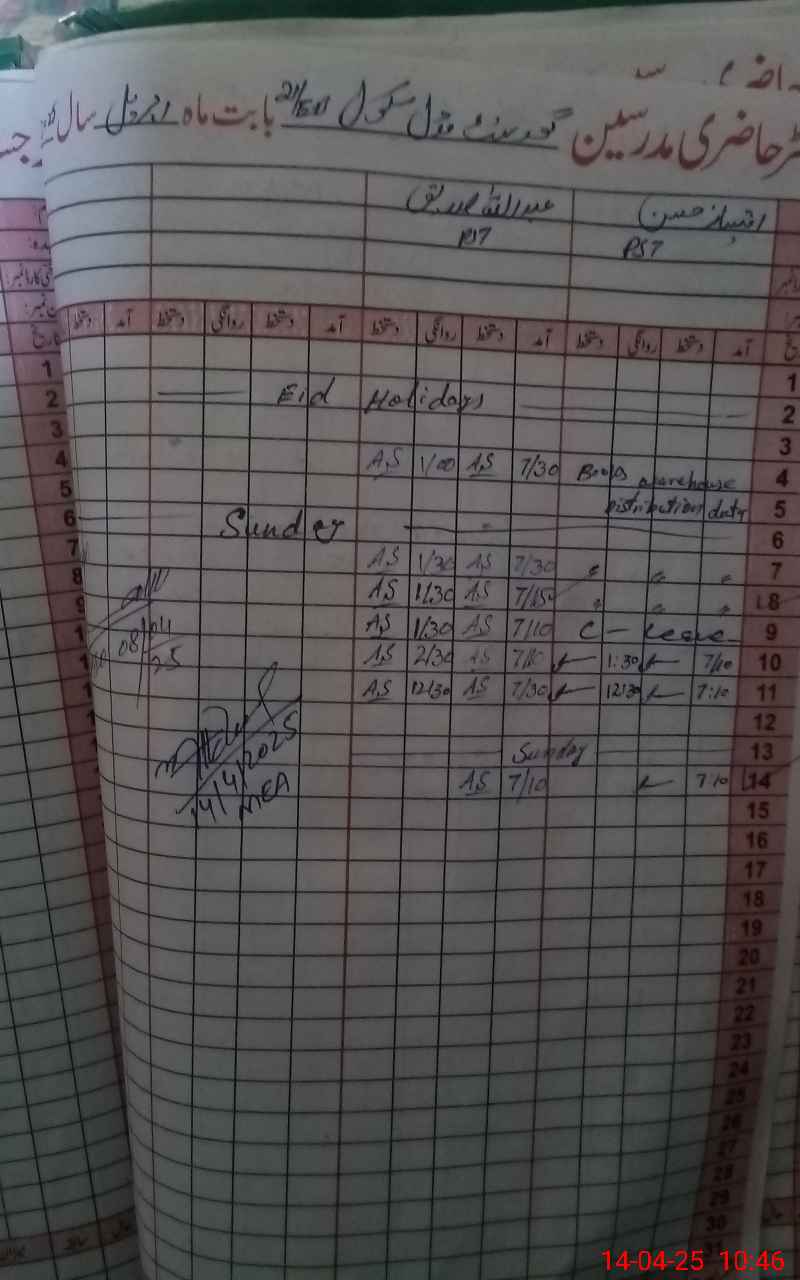 رجسٹر حاضری مدرسین گورنمنٹ مڈل سکول 21/EB بابت ماہ اپریل سال
امتیاز حسن عبداللہ صدیق
PST PST
آمد دستخط روانگی دستخط آمد دستخط روانگی دستخط آمد دستخط روانگی دستخط آمد دستخط
1
2 Eid Holidays
3
4 A.S 1/00 A.S 7/30 Books warehouse
5 Distribution duty
6 Sunday
7 A.S 1/30 A.S 7/30 " " "
8 A.S 1/30 A.S 7/15 " " "
9 A.S 1/30 A.S 7/10 C - Leave
10 A.S 2/30 A.S 7/10 1:30 7/10
11 A.S 12/30 A.S 7/30 12:30 7:10
08/04
25
12
13 Sunday
14 A.S 7/10 7:10
14/4/2025
MEA
15
16
17
18
19
20
21
22
23
24
25
26
27
28
29
30
31
14-04-25 10:46